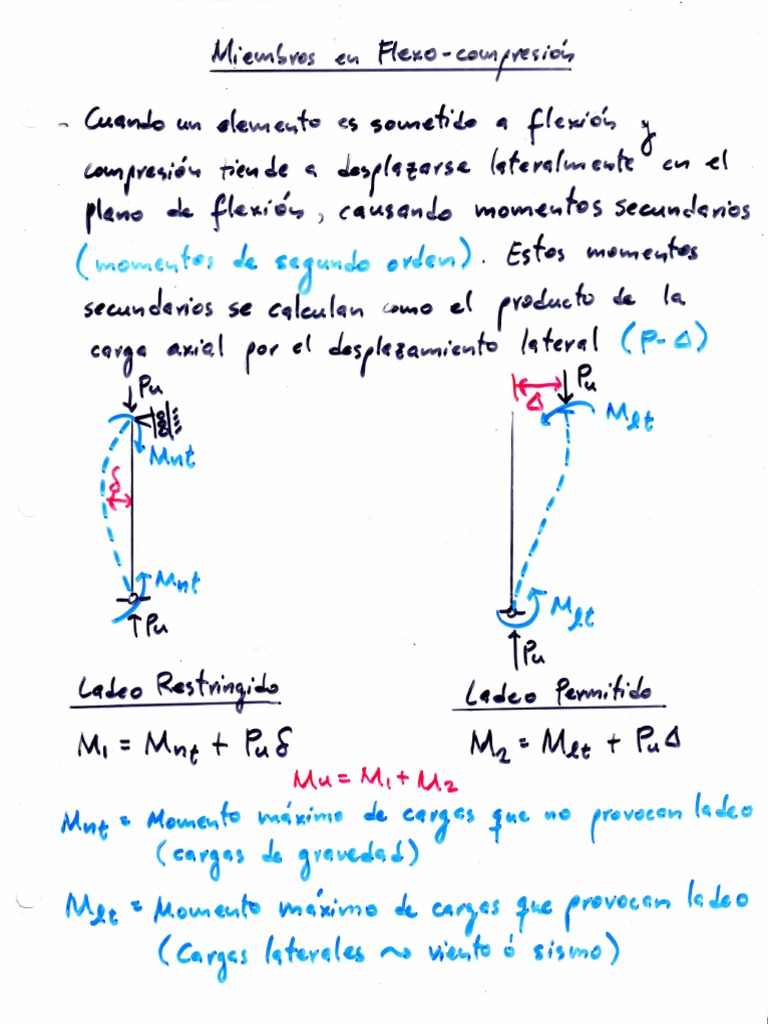 Miembros en Flexo-compresión
- Cuando un elemento es sometido a flexión y
compresión tiende a desplazarse lateralmente en el
plano de flexión, causando momentos secundarios
(momentos de segundo orden). Estos momentos
secundarios se calculan como el producto de la
carga axial por el desplazamiento lateral (P-Δ)
Pu
Mnt
δ
Mnt
Pu
Δ
Pu
Mlt
Mlt
Pu
Ladeo Restringido
Ladeo Permitido
M1 = Mnt + Pu δ
M2 = Mlt + Pu Δ
Mu = M1 + M2
Mnt = Momento máximo de cargas que no provocan ladeo
(cargas de gravedad)
Mlt = Momento máximo de cargas que provocan ladeo
(Cargas laterales ~ viento ó sismo)